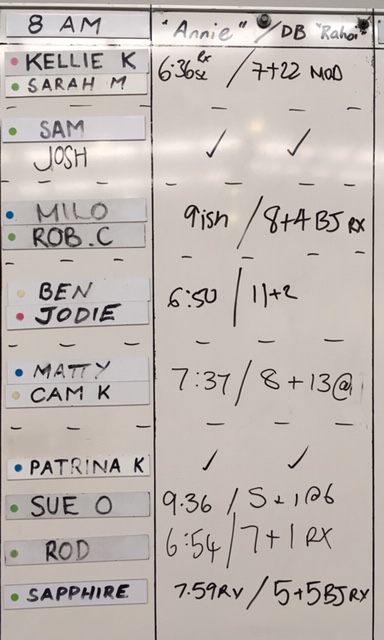 8 AM "Annie" / DB "Rahoi"
KELLIE K 6:36 Rx Sc / 7+22 MOD
SARAH M
SAM ✓ ✓
JOSH
MILO 9ish / 8+4 BJ RX
ROB.C
BEN 6:50 / 11+2
JODIE
MATTY 7:37 / 8 + 13@
CAM K
PATRINA K ✓ ✓
SUE O 9.36 / 5+1@6
ROD 6:54 / 7+1 RX
SAPPHIRE 7.59RX / 5+5BJ RX